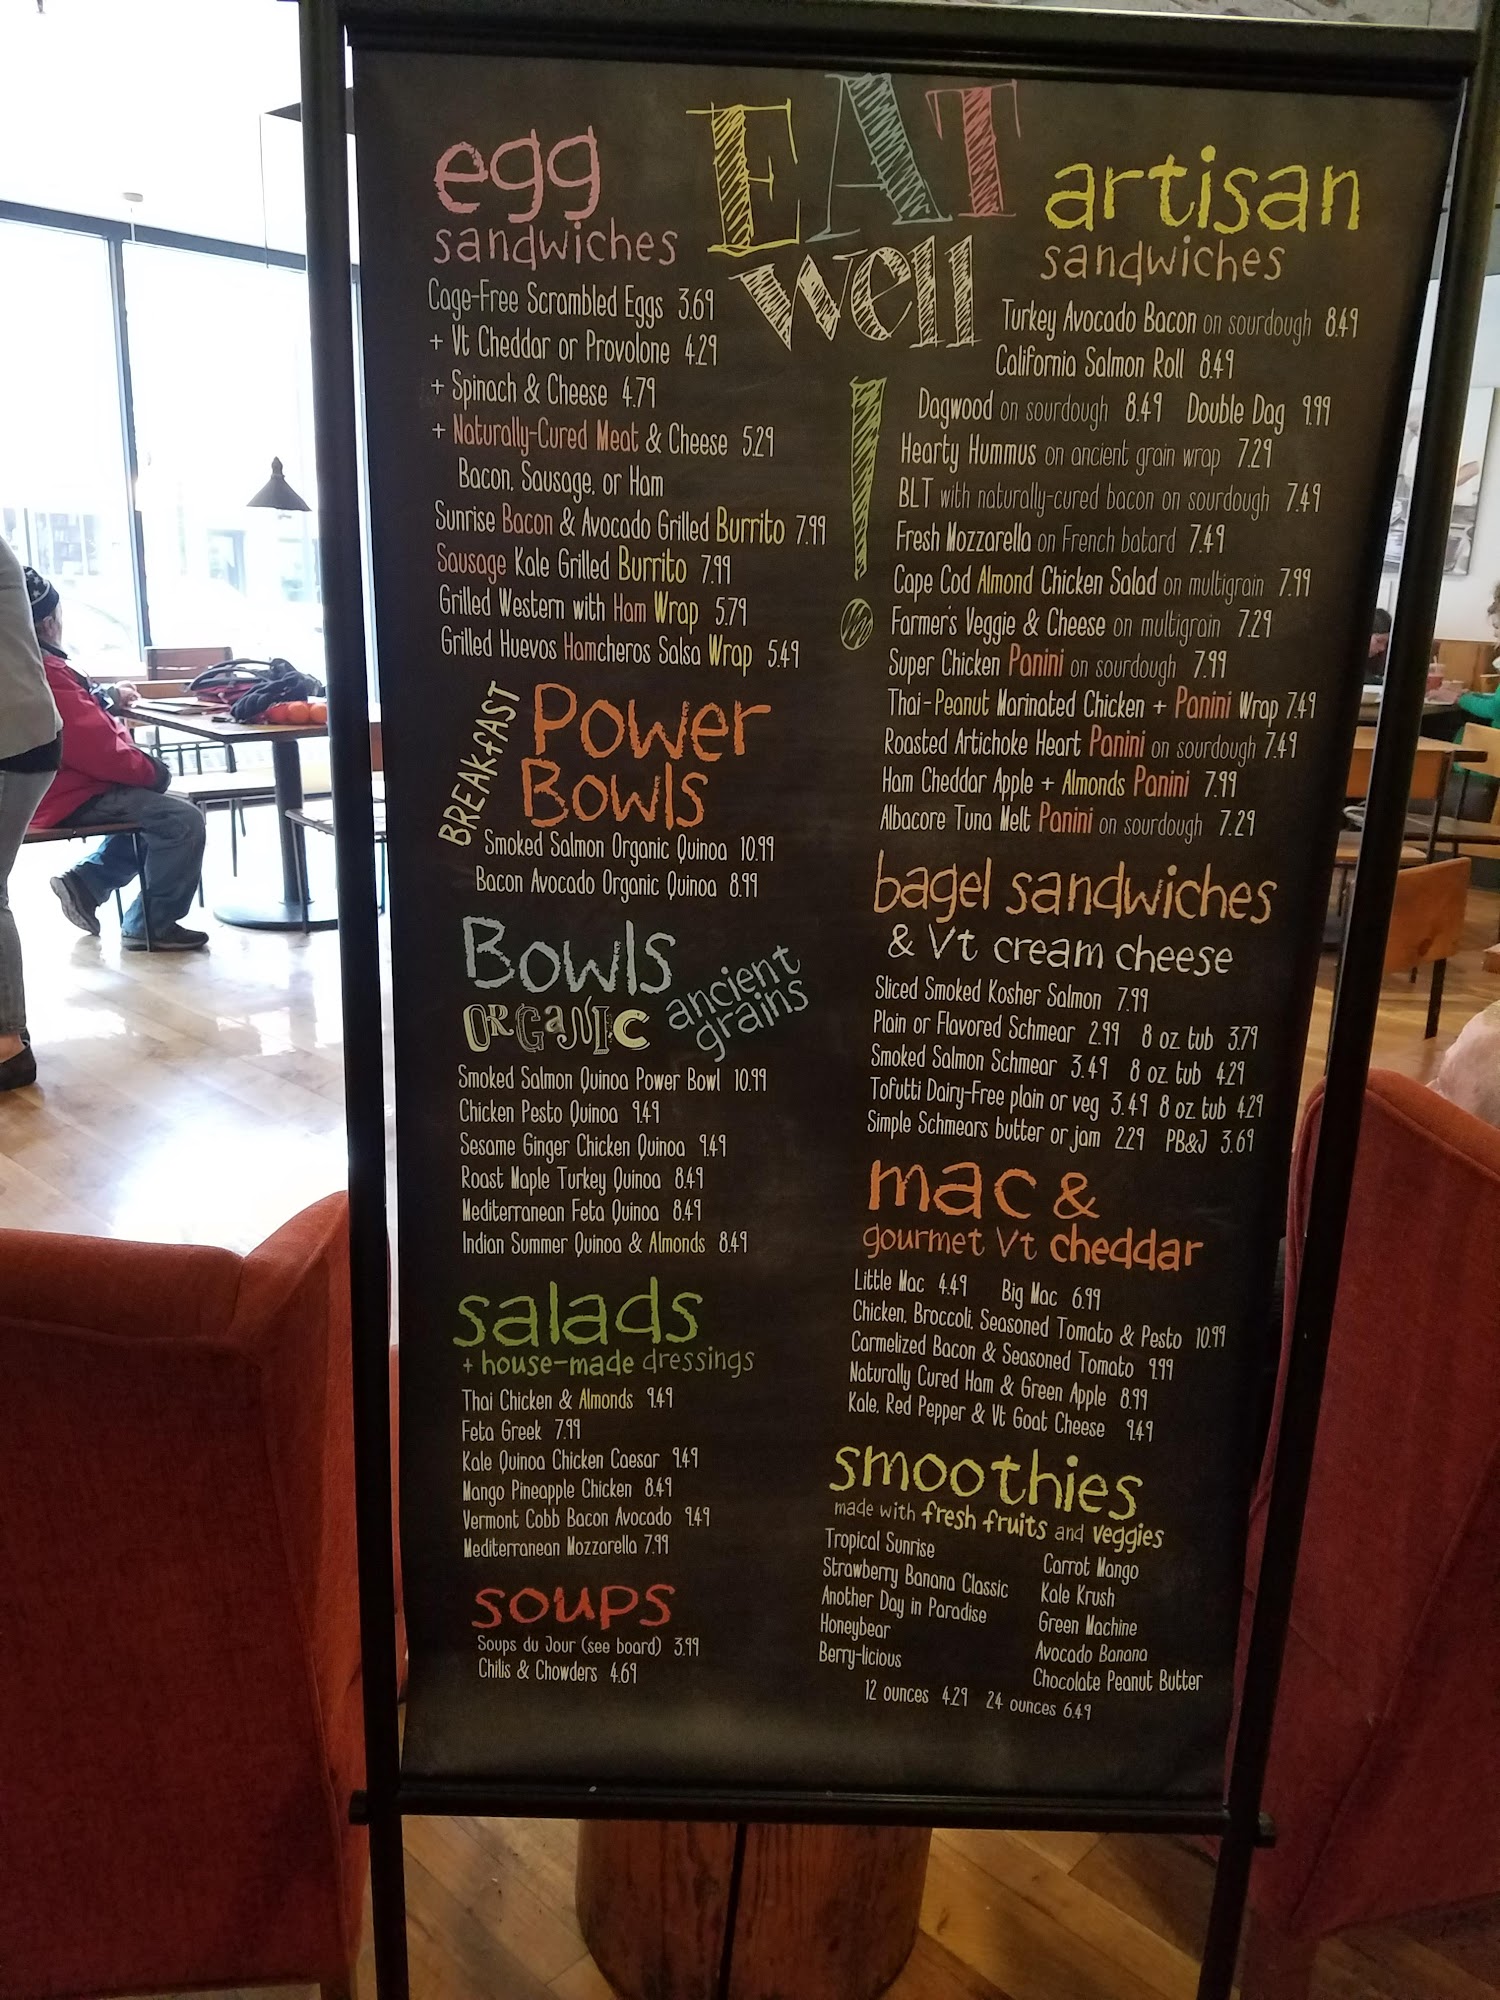 EAT
well
!
egg
sandwiches
Cage-Free Scrambled Eggs 3.69
+ Vt Cheddar or Provolone 4.29
+ Spinach & Cheese 4.79
+ Naturally-Cured Meat & Cheese 5.29
Bacon, Sausage, or Ham
Sunrise Bacon & Avocado Grilled Burrito 7.99
Sausage Kale Grilled Burrito 7.99
Grilled Western with Ham Wrap 5.79
Grilled Huevos Hamcheros Salsa Wrap 5.49
BREAKfAST
Power
Bowls
Smoked Salmon Organic Quinoa 10.99
Bacon Avocado Organic Quinoa 8.99
Bowls
ORGaNIC
ancient
grains
Smoked Salmon Quinoa Power Bowl 10.99
Chicken Pesto Quinoa 9.49
Sesame Ginger Chicken Quinoa 9.49
Roast Maple Turkey Quinoa 8.49
Mediterranean Feta Quinoa 8.49
Indian Summer Quinoa & Almonds 8.49
salads
+ house-made dressings
Thai Chicken & Almonds 9.49
Feta Greek 7.99
Kale Quinoa Chicken Caesar 9.49
Mango Pineapple Chicken 8.49
Vermont Cobb Bacon Avocado 9.49
Mediterranean Mozzarella 7.99
soups
Soups du Jour (see board) 3.99
Chilis & Chowders 4.69
artisan
sandwiches
Turkey Avocado Bacon on sourdough 8.49
California Salmon Roll 8.49
Dagwood on sourdough 8.49 Double Dag 9.99
Hearty Hummus on ancient grain wrap 7.29
BLT with naturally-cured bacon on sourdough 7.49
Fresh Mozzarella on French batard 7.49
Cape Cod Almond Chicken Salad on multigrain 7.99
Farmer's Veggie & Cheese on multigrain 7.29
Super Chicken Panini on sourdough 7.99
Thai-Peanut Marinated Chicken + Panini Wrap 7.49
Roasted Artichoke Heart Panini on sourdough 7.49
Ham Cheddar Apple + Almonds Panini 7.99
Albacore Tuna Melt Panini on sourdough 7.29
bagel sandwiches
& Vt cream cheese
Sliced Smoked Kosher Salmon 7.99
Plain or Flavored Schmear 2.99 8 oz tub 3.79
Smoked Salmon Schmear 3.49 8 oz tub 4.29
Tofutti Dairy-Free plain or veg 3.49 8 oz. tub 4.29
Simple Schmears butter or jam 2.29 PB&J 3.69
mac &
gourmet Vt cheddar
Little Mac 4.49 Big Mac 6.99
Chicken, Broccoli, Seasoned Tomato & Pesto 10.99
Carmelized Bacon & Seasoned Tomato 9.99
Naturally Cured Ham & Green Apple 8.99
Kale, Red Pepper & Vt Goat Cheese 9.49
smoothies
made with fresh fruits and veggies
Tropical Sunrise
Strawberry Banana Classic
Another Day in Paradise
Honeybear
Berry-licious
Carrot Mango
Kale Krush
Green Machine
Avocado Banana
Chocolate Peanut Butter
12 ounces 4.29 24 ounces 6.49